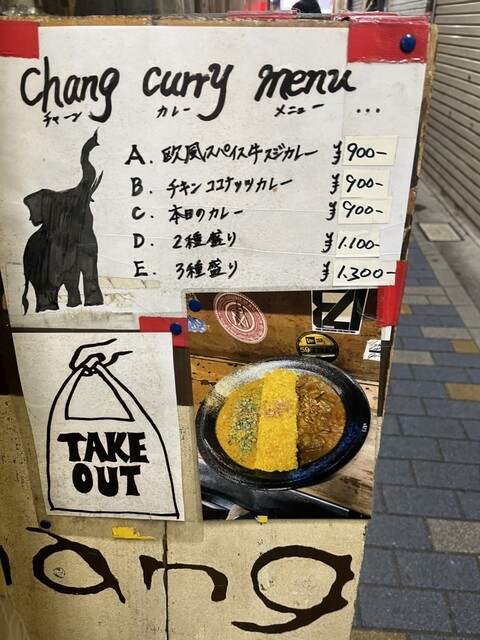 chang curry menu
チャーン カレー メニュー ...
A. 欧風スパイス牛スジカレー ¥900-
B. チキンココナッツカレー ¥900-
C. 本日のカレー ¥900-
D. 2種盛り ¥1.100-
E. 3種盛り ¥1.300-
TAKE
OUT
ang